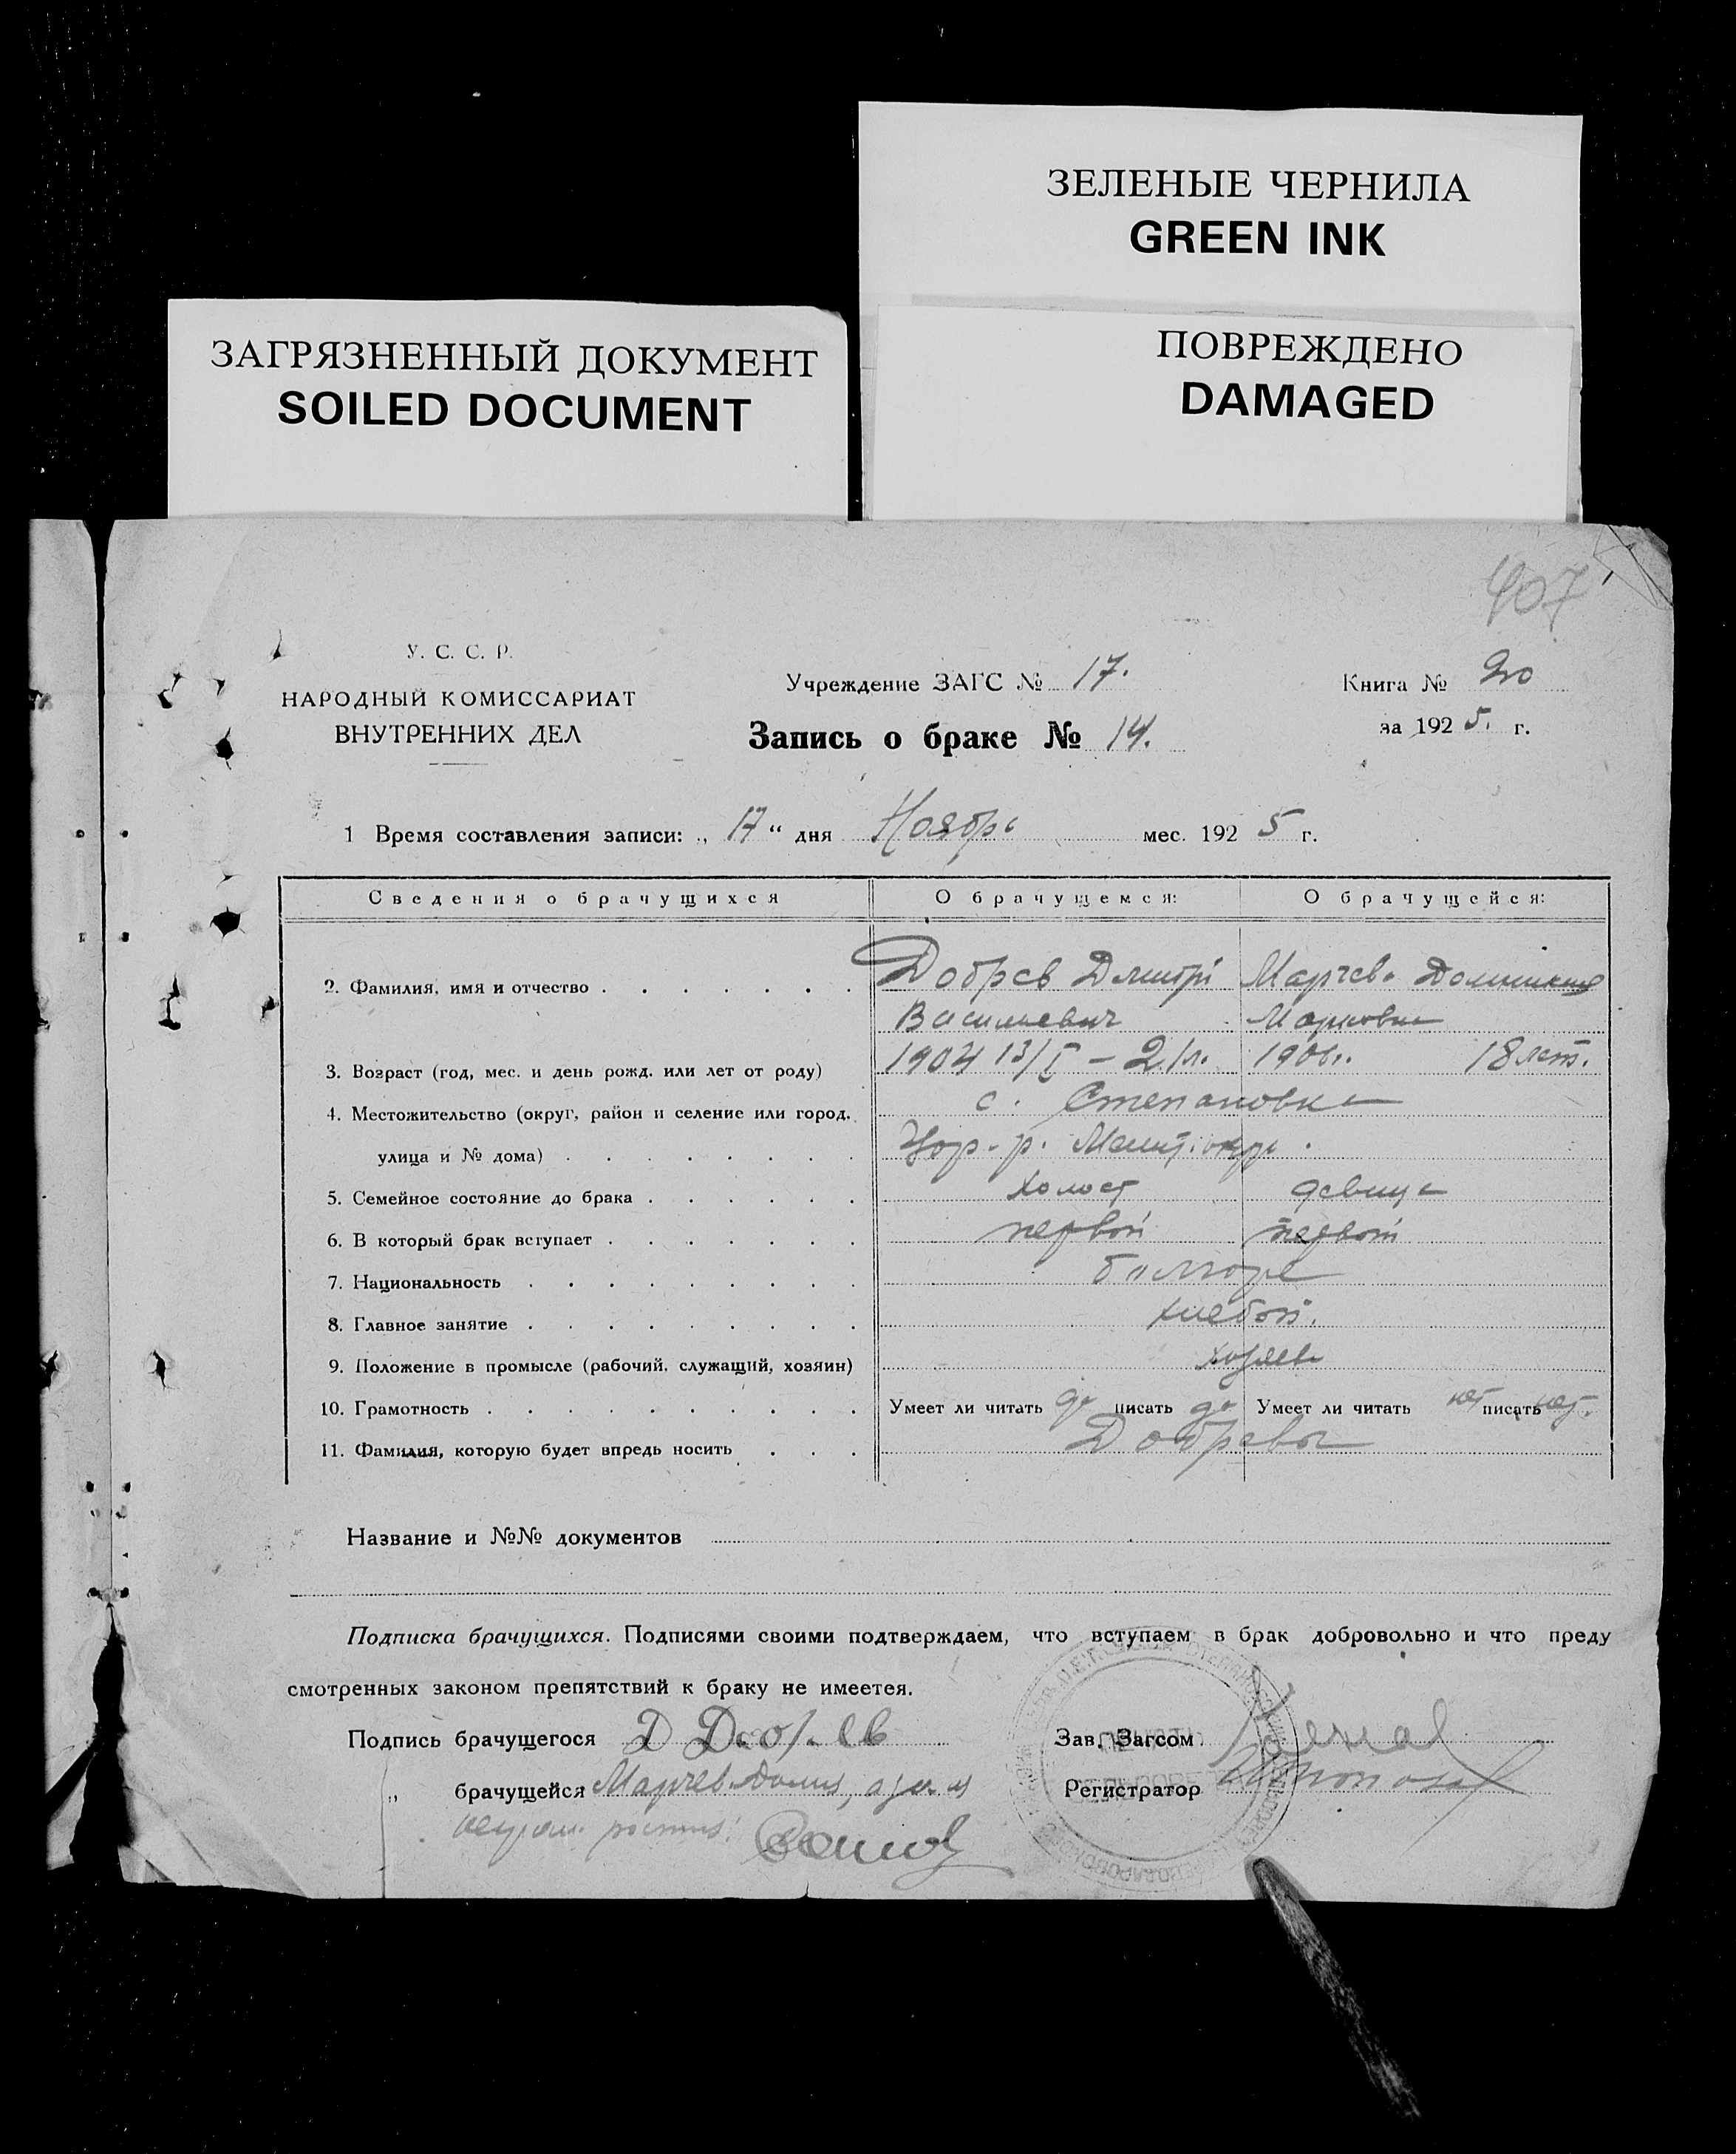 ЗЕЛЕНЫЕ ЧЕРНИЛА
GREEN INK
ЗАГРЯЗНЕННЫЙ ДОКУМЕНТ
SOILED DOCUMENT
ПОВРЕЖДЕНО
DAMAGED
407
У. С. С. Р.
НАРОДНЫЙ КОМИССАРИАТ
ВНУТРЕННИХ ДЕЛ
Учреждение ЗАГС № 17.
Запись о браке № 14.
Книга № 20
за 1925. г.
1 Время составления записи: „ 17 “ дня Ноябрь мес. 1925 г.
Сведения о брачущихся О брачущемся: О брачущейся:
2. Фамилия, имя и отчество Добрев Дмитрі Марчева
Васильевич Марковна
3. Возраст (год, мес. и день рожд. или лет от роду) 1904 13/I – 21 л. 1906 г. 18 лет.
4. Местожительство (округ, район и селение или город, с. Степановка
улица и № дома) Мелит. окр.
5. Семейное состояние до брака холост девица
6. В который брак вступает первой первой
7. Национальность болгоре
8. Главное занятие хлебоп.
9. Положение в промысле (рабочий, служащий, хозяин) хозяева
10. Грамотность Умеет ли читать да писать да Умеет ли читать нет писать нет.
11. Фамилия, которую будет впредь носить Добревы
Название и №№ документов
Подписка брачущихся. Подписями своими подтверждаем, что вступаем в брак добровольно и что преду
смотренных законом препятствий к браку не имеетея.
Подпись брачущегося Д Добрев
Зав. Загсом
„ брачущейся Марчева
Регистратор